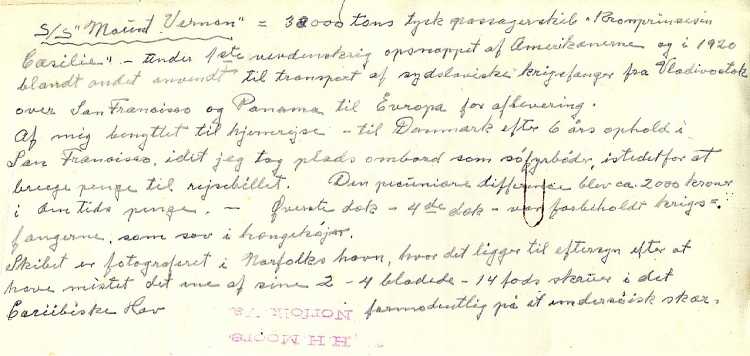 S/S "Mount Vernon" = 32000 tons tysk passagerskib "Kronprinsessin
Cæsilie". - Under 1ste verdenskrig opsnappet af Amerikanerne og i 1920
blandt andet anvendt til transport af sydslaviske krigsfanger fra Vladivostok
over San Francisco og Panama til Evropa for aflevering.
Af mig benyttet til hjemrejse - til Danmark efter 6 års ophold i
San Francisco, idet jeg tog plads ombord som søfyrbøder, istedetfor at
bruge penge til rejsebillet. Den pecuniære difference blev ca. 2000 kroner
i datids penge. - Øverste dæk - 4de dæk - var forbeholdt krigs=
fangerne, som sov i hængekøjer.
Skibet er fotograferet i Norfolks havn, hvor det ligger til eftersyn efter at
have mistet det ene af sine 2 - 4 bladede - 14 fods skruer i det
Cariibiske Hav formodentlig på et undersøisk skær.
H H Moore
Norfolk Va.